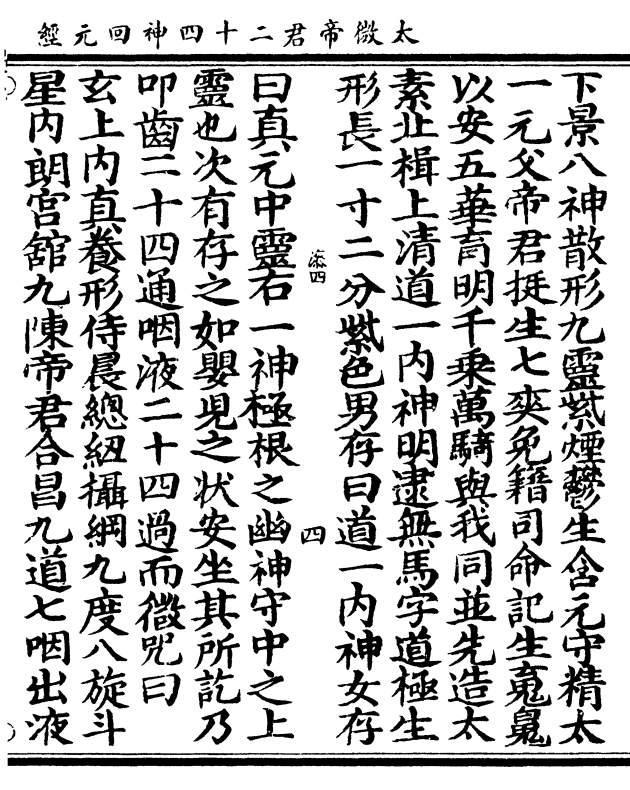 太微帝君二十四神回元經
下景八神散形九靈紫煙鬱生含元守精太
一元父帝君挺生七爽免籍司命記生𩲸𩳁
以安五華啇明千乗萬騎與我同並先造太
素北揖上清道一内神明逮無馬字道極生
形長一寸二分紫色男存曰道一内神女存
添四
四
曰真元中靈右一神極根之幽神守中之上
靈也次有存之如嬰児之状安坐其所訖乃
叩齒二十四通咽液二十四過而微咒曰
玄上内真養形侍晨總紐攝綱九度八旋斗
星内朗宮舘九陳帝君合昌九道七咽出液